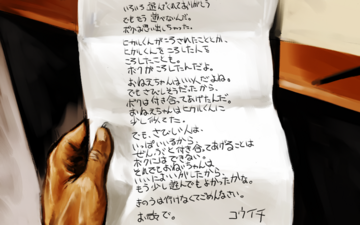 いろいろ 遊んでくれてありがとう
でももう 遊べないんだ。
ボクは思い出しちゃった。
ヒカルくんがころされたことしか、
ヒカルくんをころした人を
ころしたことも。
ボクがころしたんだよ。
おねえちゃんはいい人だよね。
でもさびしそうだったから、
ボクは付き合ってあげたんだ。
おねえちゃんはヒカルくんに
少しにてた。
でも、さびしい人は、
いっぱいいるから、
ぜんぶと付き合ってあげることは
ボクにはできない。
それでもおねえちゃんは
いいにおいがしたから、
もう少し遊んでもよかったかな。
きのうは行けなくてごめんなさい。
お元気で。
コウイチ